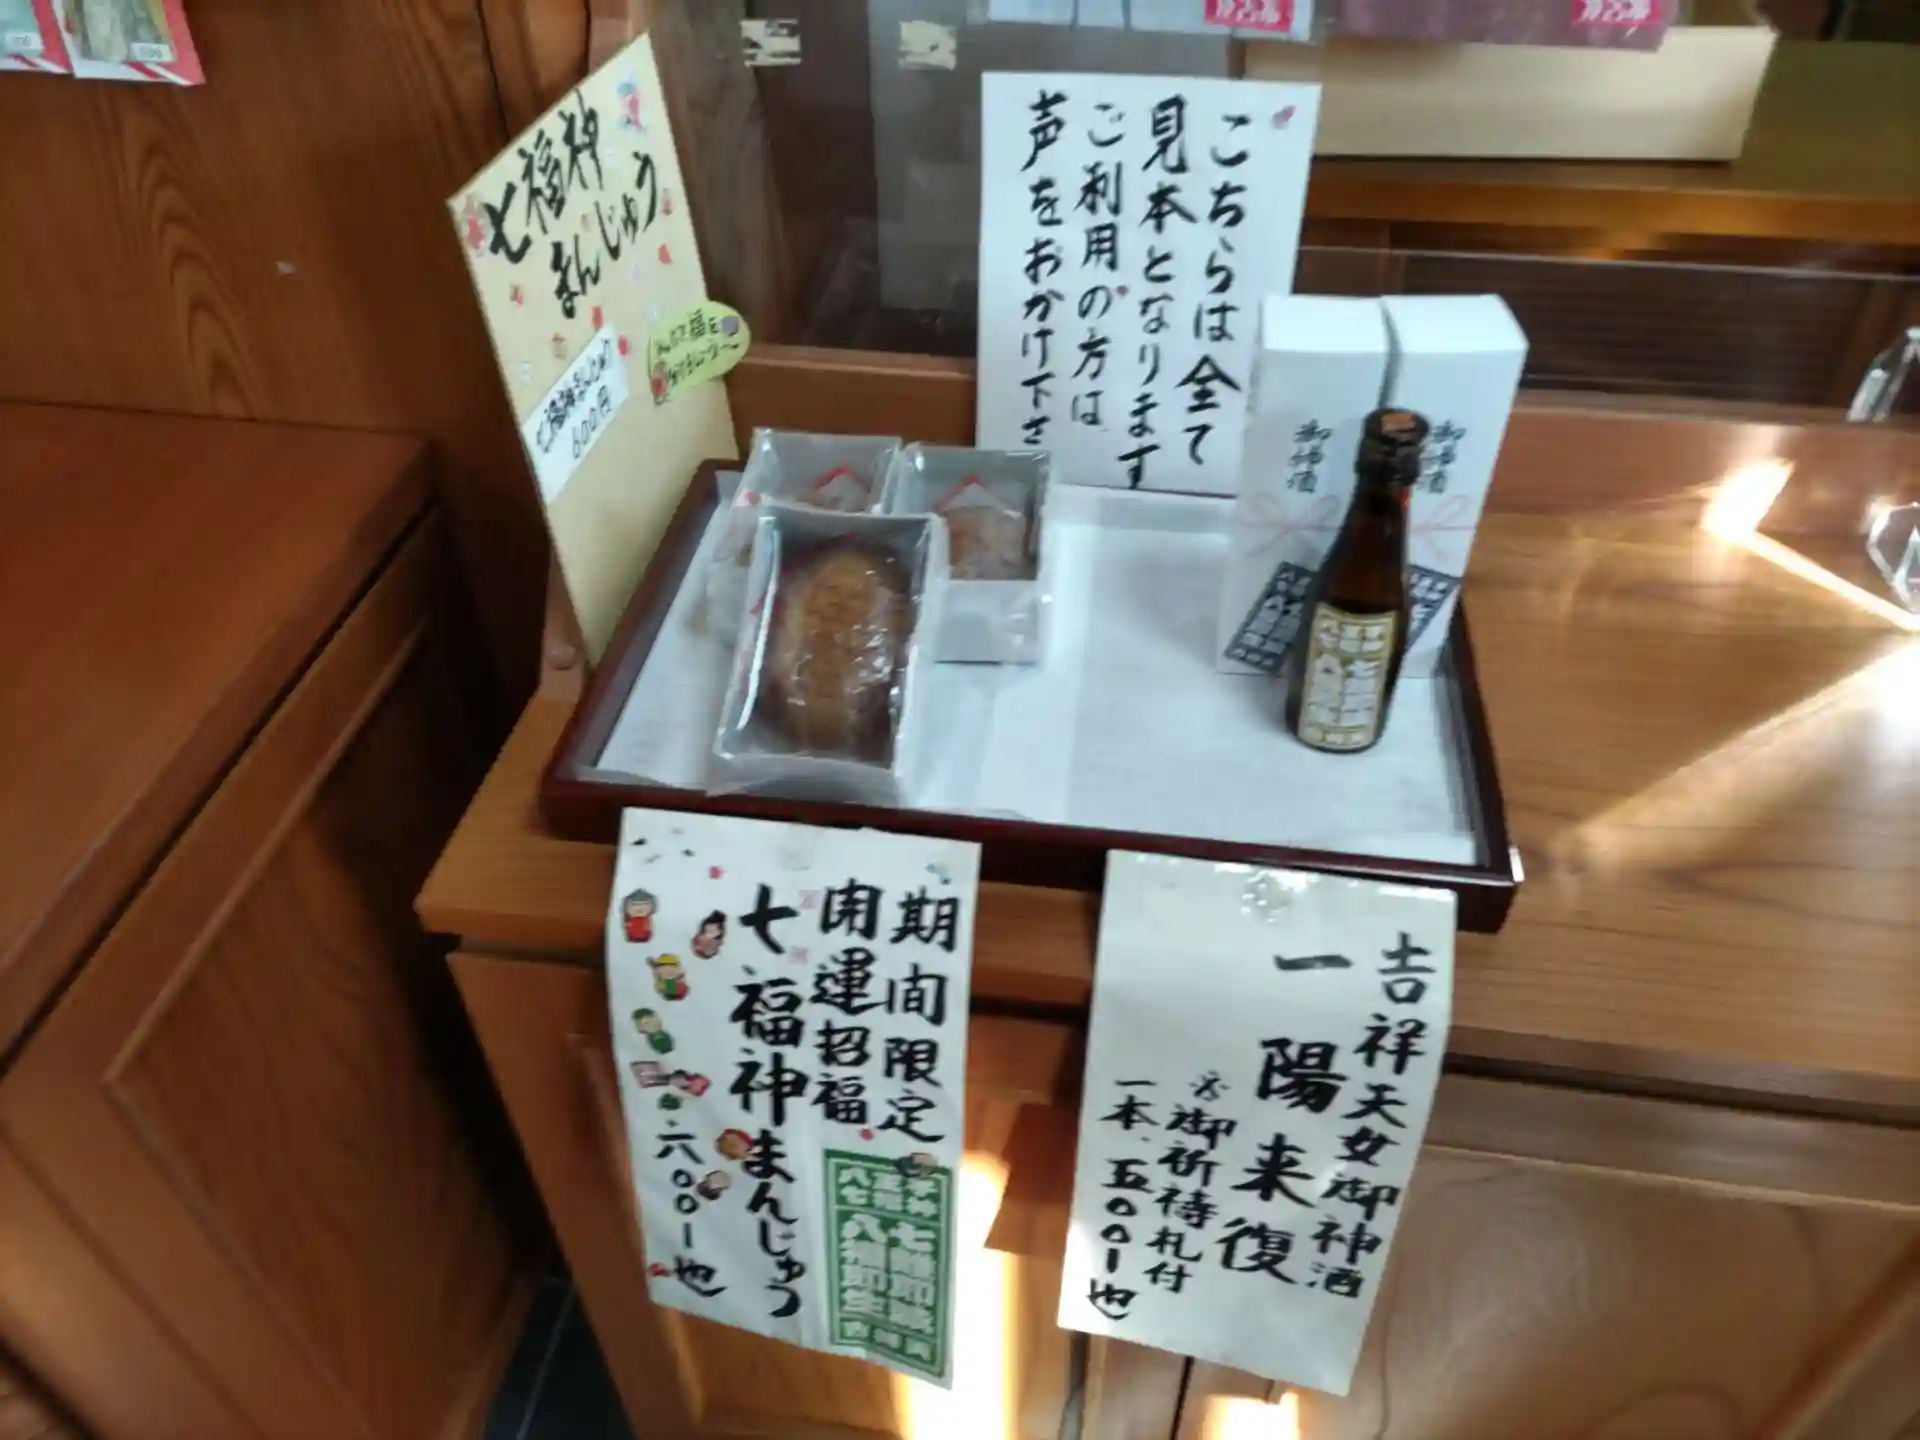 七福神
まんじゅう
七福神まんじゅう
600円
こちらは全て
見本となります
ご利用の方は
声をおかけ下さ
御神酒
御神酒
期間限定
開運招福
七福神まんじゅう
六〇〇ー也
七難即滅
八福即生
吉祥天女御神酒
一陽来復
※御祈祷札付
一本、五〇〇ー也